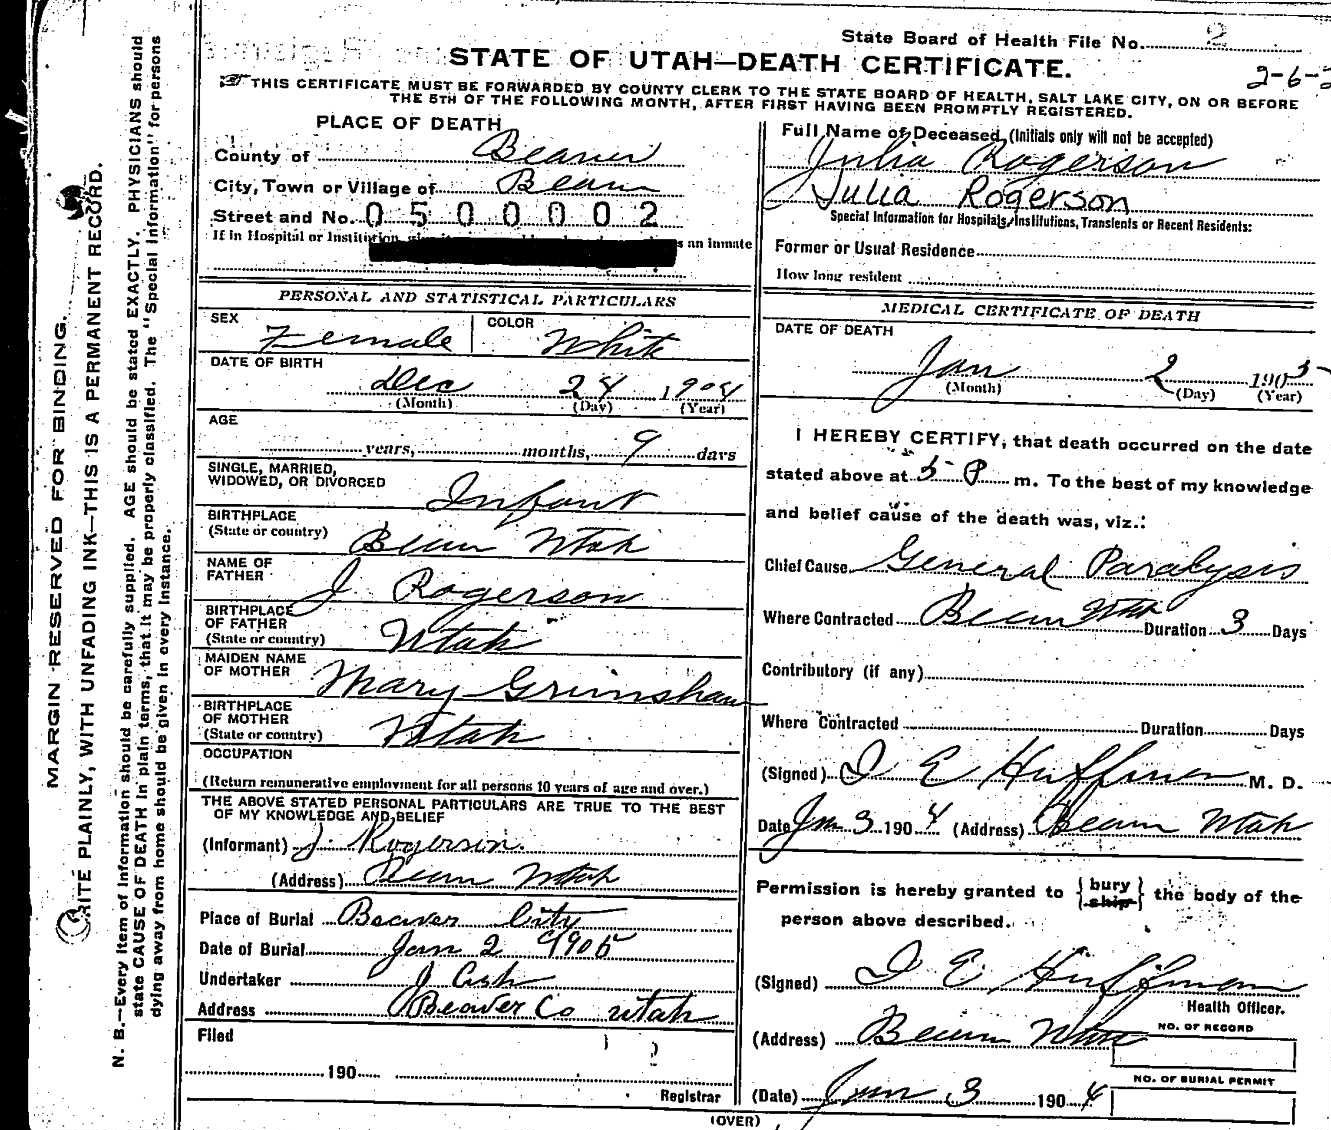 State Board of Health File No. 2
STATE OF UTAH—DEATH CERTIFICATE.
2-6-
THIS CERTIFICATE MUST BE FORWARDED BY COUNTY CLERK TO THE STATE BOARD OF HEALTH, SALT LAKE CITY, ON OR BEFORE
THE 5TH OF THE FOLLOWING MONTH, AFTER FIRST HAVING BEEN PROMPTLY REGISTERED.
PLACE OF DEATH
County of Beaver
City, Town or Village of Beaver
Street and No. 0500002
If in Hospital or Institution, s an inmate
PERSONAL AND STATISTICAL PARTICULARS
SEX Female COLOR White
DATE OF BIRTH
Dec 24 1904
(Month) (Day) (Year)
AGE
years, months, 9 days
SINGLE, MARRIED,
WIDOWED, OR DIVORCED Infant
BIRTHPLACE
(State or country) Beaver Utah
NAME OF
FATHER J Rogerson
BIRTHPLACE
OF FATHER
(State or country) Utah
MAIDEN NAME
OF MOTHER Mary Grimshaw
BIRTHPLACE
OF MOTHER
(State or country) Utah
OCCUPATION
(Return remunerative employment for all persons 10 years of age and over.)
THE ABOVE STATED PERSONAL PARTICULARS ARE TRUE TO THE BEST
OF MY KNOWLEDGE AND BELIEF
(Informant) J. Rogerson.
(Address) Beaver Utah
Place of Burial Beaver City
Date of Burial Jan 2 1905
Undertaker J Cash
Address Beaver Co Utah
Filed
190
Registrar
Full Name of Deceased, (Initials only will not be accepted)
Julia Rogerson
Julia Rogerson
Special Information for Hospitals, Institutions, Transients or Recent Residents:
Former or Usual Residence
How long resident
MEDICAL CERTIFICATE OF DEATH
DATE OF DEATH
Jan 2 1905
(Month) (Day) (Year)
I HEREBY CERTIFY, that death occurred on the date
stated above at 5 P m. To the best of my knowledge
and belief cause of the death was, viz.:
Chief Cause General Paralysis
Where Contracted Beaver Utah Duration 3 Days
Contributory (if any)
Where Contracted Duration Days
(Signed) D E Huffman M. D.
Date Jan 3 1904 (Address) Beaver Utah
Permission is hereby granted to {bury
ship} the body of the
person above described.
(Signed) D E Huffman
Health Officer.
(Address) Beaver Utah
NO. OF RECORD
NO. OF BURIAL PERMIT
(Date) Jan 3 1904
(OVER)
MARGIN RESERVED FOR BINDING.
RITE PLAINLY, WITH UNFADING INK—THIS IS A PERMANENT RECORD.
N. B.—Every item of information should be carefully supplied. AGE should be stated EXACTLY. PHYSICIANS should
state CAUSE OF DEATH in plain terms, that it may be properly classified. The "Special Information" for persons
dying away from home should be given in every instance.